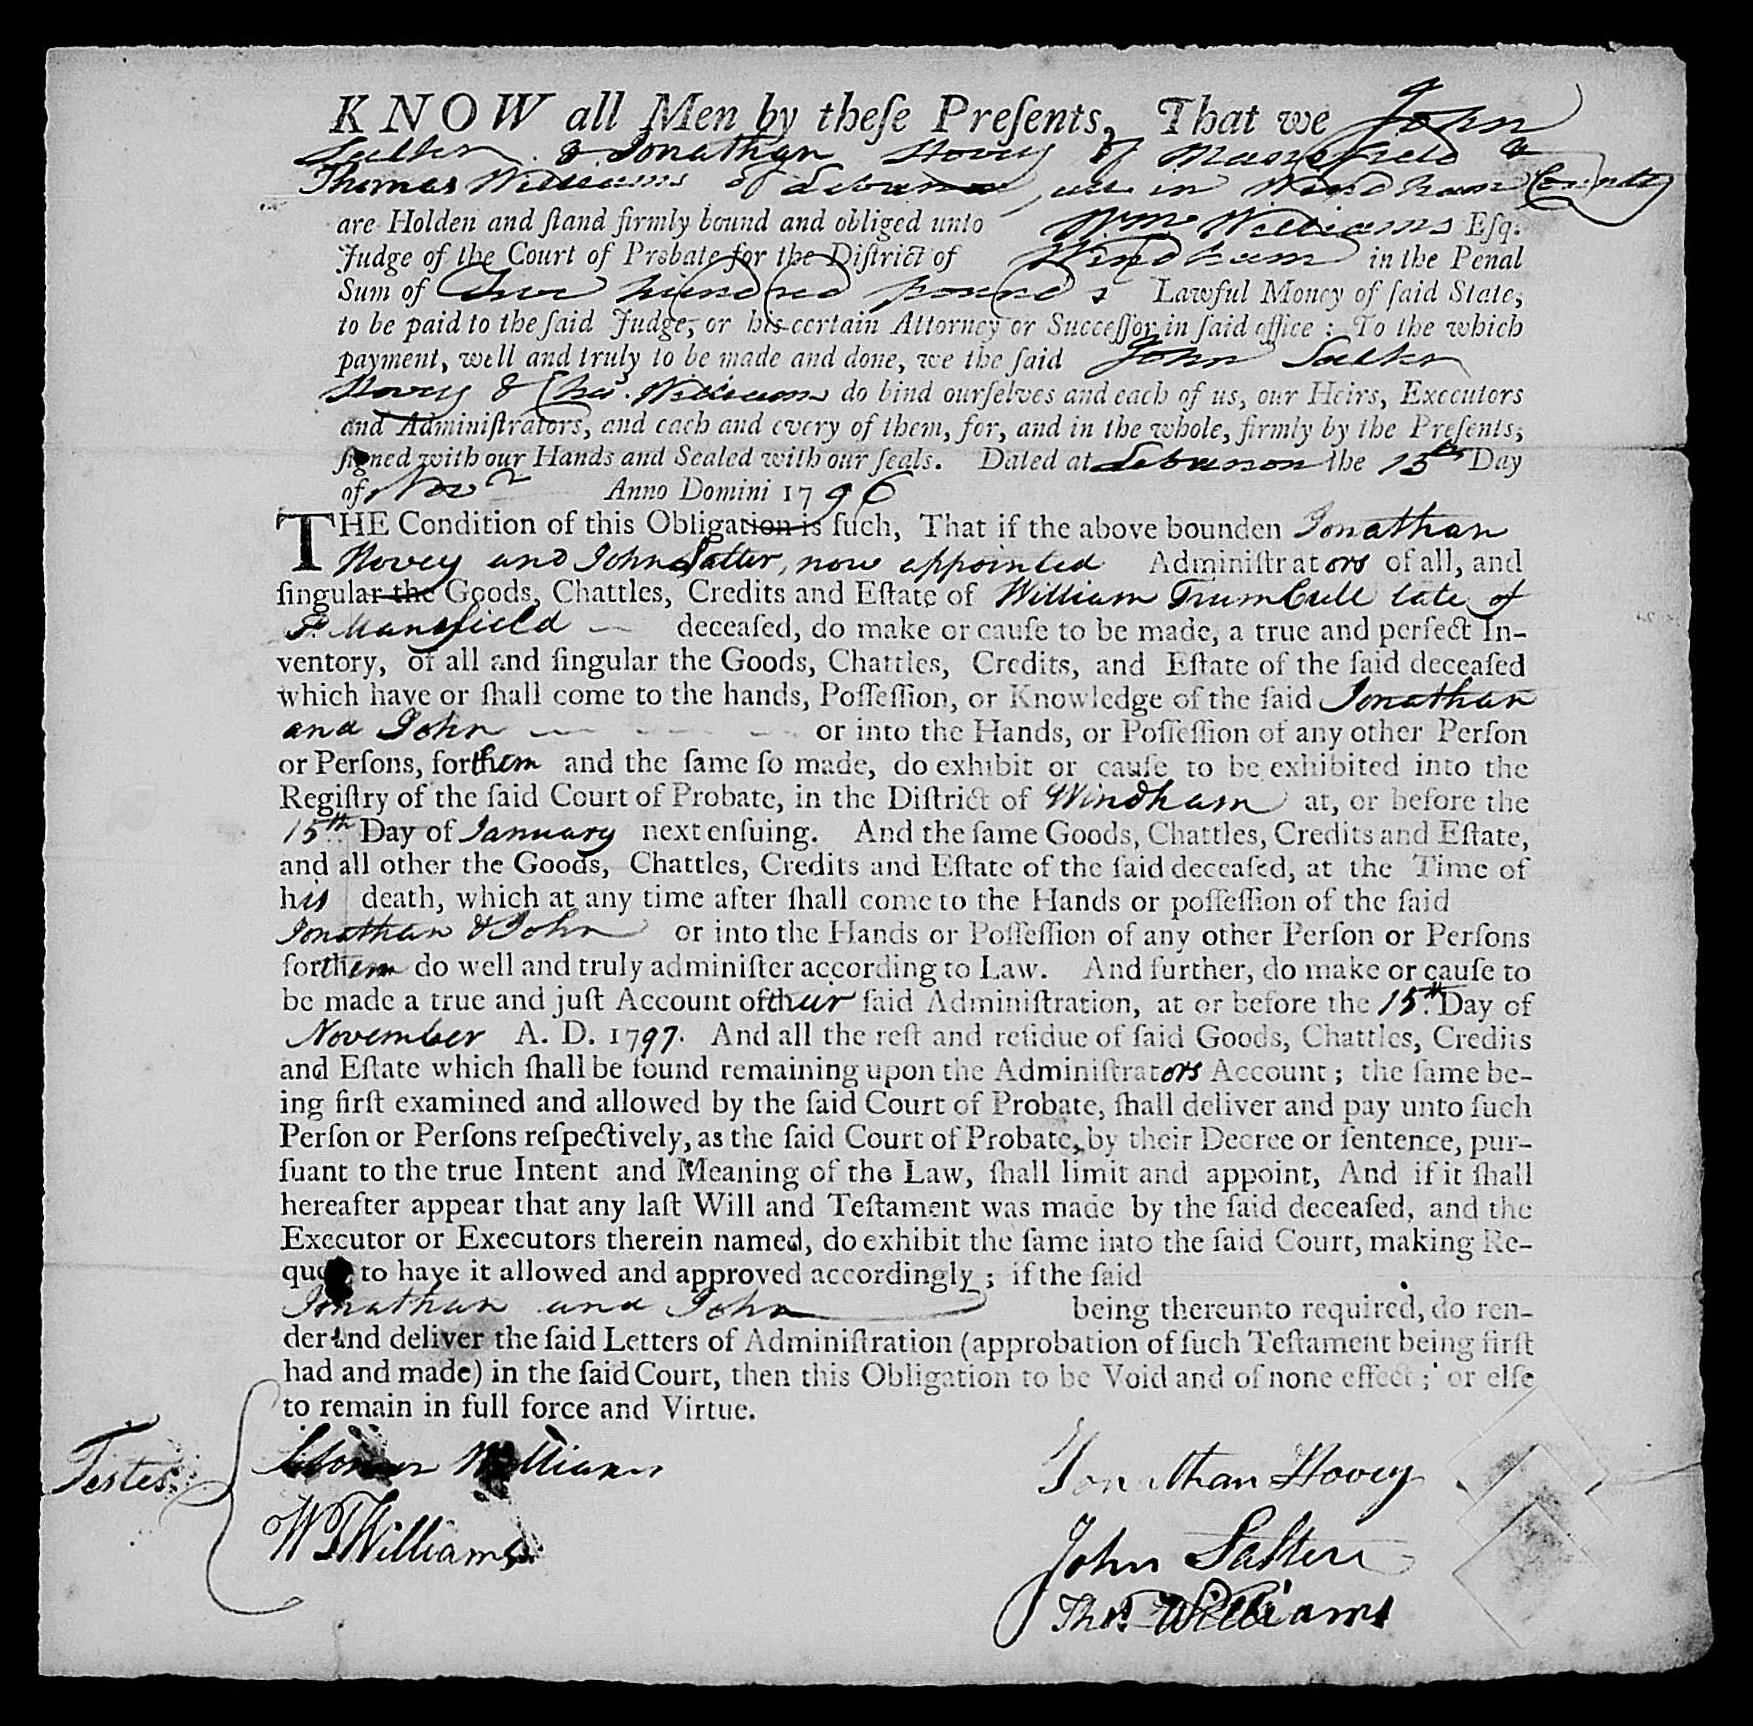 KNOW all Men by theſe Preſents, That we John
Salter & Jonathan Hovey of Mansfield &
Thomas Williams of Lebanon, all in Windham County
are Holden and ſtand firmly bound and obliged unto Wm Williams Eſq.
Judge of the Court of Probate for the Diſtrict of Windham in the Penal
Sum of hundred pounds Lawful Money of ſaid State,
to be paid to the ſaid Judge, or his certain Attorney or Succeſſor in ſaid office : To the which
payment, well and truly to be made and done, we the ſaid John Salter
Hovey & Thos. Williams do bind ourſelves and each of us, our Heirs, Executors
and Adminiſtrators, and each and every of them, for, and in the whole, firmly by the Preſents,
ſigned with our Hands and Sealed with our ſeals. Dated at Lebanon the 15th Day
of Novr Anno Domini 1796
THE Condition of this Obligation is ſuch, That if the above bounden Jonathan
Hovey and John Salter, now appointed Adminiſtrators of all, and
ſingular the Goods, Chattles, Credits and Eſtate of William Trumbull late of
sd. Mansfield deceaſed, do make or cauſe to be made, a true and perfect In-
ventory, of all and ſingular the Goods, Chattles, Credits, and Eſtate of the ſaid deceaſed
which have or ſhall come to the hands, Poſſeſſion, or Knowledge of the ſaid Jonathan
and John or into the Hands, or Poſſeſſion of any other Perſon
or Perſons, for them and the ſame ſo made, do exhibit or cauſe to be exhibited into the
Regiſtry of the ſaid Court of Probate, in the Diſtrict of Windham at, or before the
15th Day of January next enſuing. And the ſame Goods, Chattles, Credits and Eſtate,
and all other the Goods, Chattles, Credits and Eſtate of the ſaid deceaſed, at the Time of
his death, which at any time after ſhall come to the Hands or poſſeſſion of the ſaid
Jonathan & John or into the Hands or Poſſeſſion of any other Perſon or Perſons
for them do well and truly adminiſter according to Law. And further, do make or cauſe to
be made a true and juſt Account of their ſaid Adminiſtration, at or before the 15th. Day of
November A. D. 1797. And all the reſt and reſidue of ſaid Goods, Chattles, Credits
and Eſtate which ſhall be found remaining upon the Adminiſtrators Account ; the ſame be-
ing firſt examined and allowed by the ſaid Court of Probate, ſhall deliver and pay unto ſuch
Perſon or Perſons reſpectively, as the ſaid Court of Probate, by their Decree or ſentence, pur-
ſuant to the true Intent and Meaning of the Law, ſhall limit and appoint, And if it ſhall
hereafter appear that any laſt Will and Teſtament was made by the ſaid deceaſed, and the
Executor or Executors therein named, do exhibit the ſame into the ſaid Court, making Re-
queſt to have it allowed and approved accordingly ; if the ſaid
Jonathan and John being thereunto required, do ren-
der and deliver the ſaid Letters of Adminiſtration (approbation of ſuch Teſtament being firſt
had and made) in the ſaid Court, then this Obligation to be Void and of none effect ; or elſe
to remain in full force and Virtue.
Testes Williams
W T Williams
Jonathan Hovey
John Salter
Thos. Williams